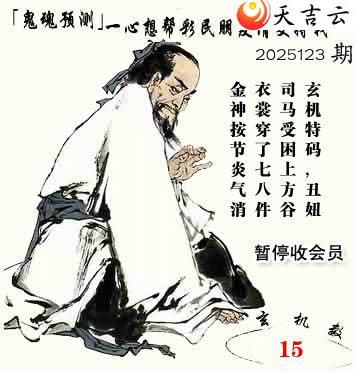 天吉云
「鬼魂预测」一心想帮彩民朋友
2025123 期
玄机特码，丑妞
司马受困上方谷
衣裳穿了七八件
金神按节炎气消
暂停收会员
玄机
15